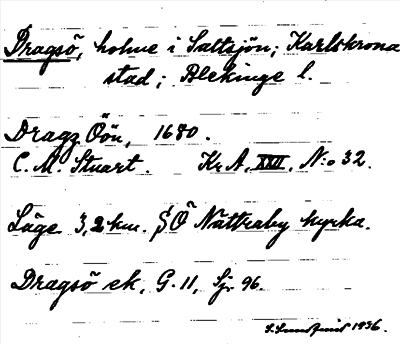 Dragsö, holme i Saltsjön; Karlskrona
stad; Blekinge l.
Dragz Öön, 1680.
C. M. Stuart. Kr. A. XXII. N:o 32.
Läge 3,2 km. SÖ Nättraby kyrka.
Dragsö ek, G. 11, Sj. 96.
S. Sundquist 1936.